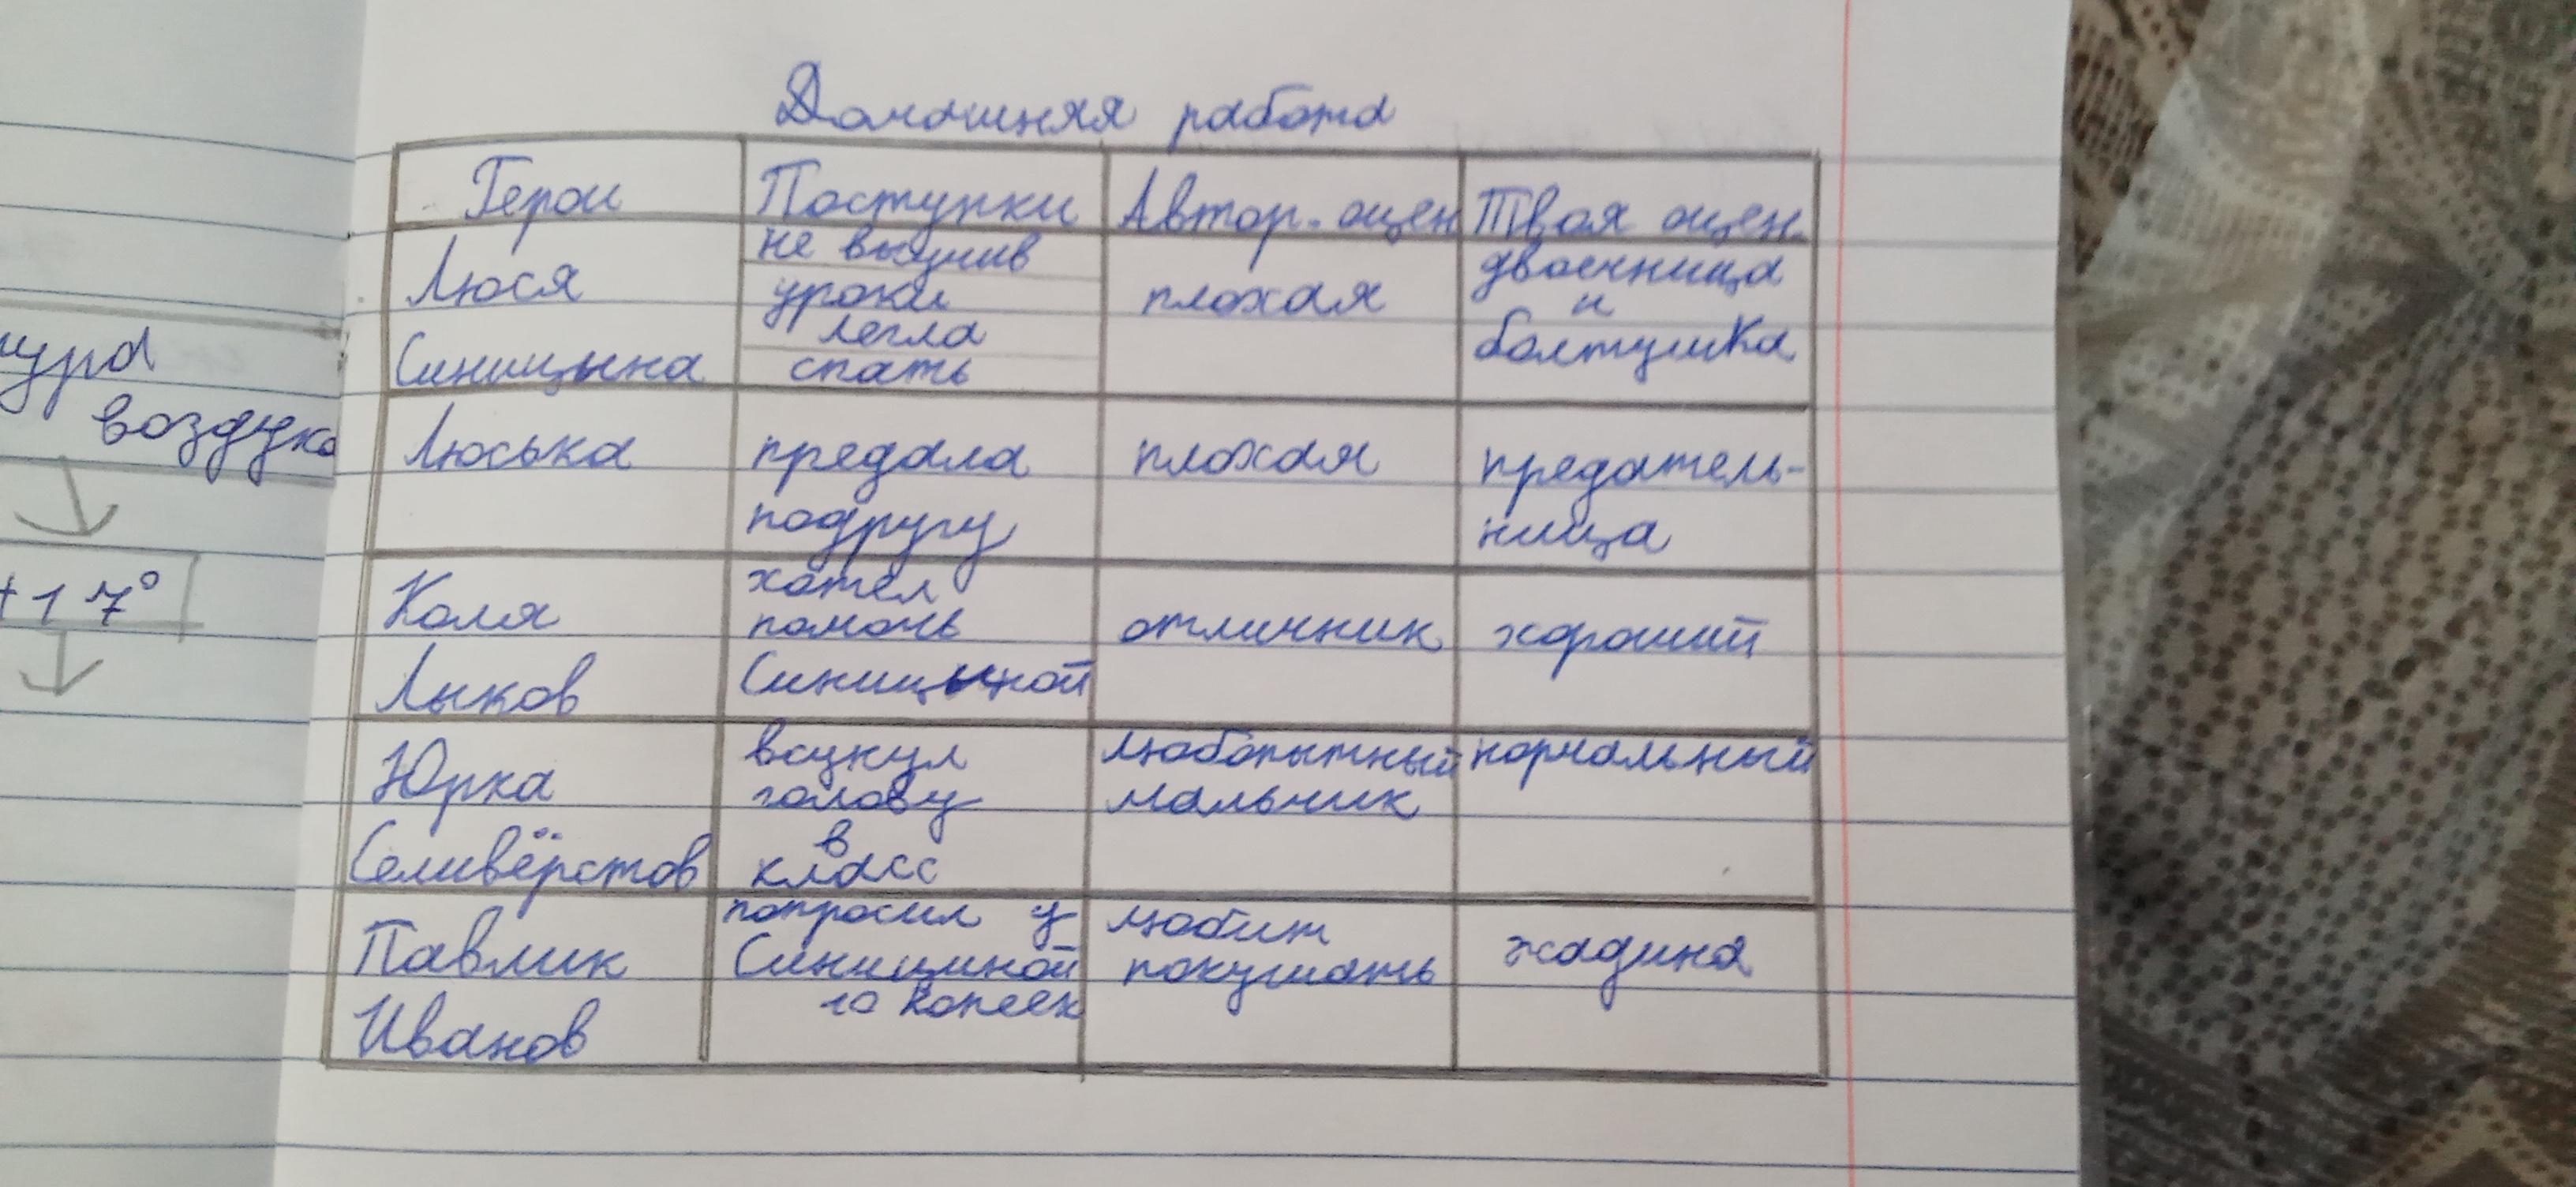 воздуха
+17°
Домашняя работа
Герои Поступки Автор. оцен Твоя оцен.
Люся
Синицына
не выучив
уроки
легла
спать
плохая
двоечница
и
болтушка
Люська
предала
подругу
плохая
предатель-
ница
Коля
Лыков
хотел
помочь
Синицыной
отличник
хороший
Юрка
Селивёрстов
всунул
голову
в
класс
любопытный
мальчик
нормальный
Павлик
Иванов
попросил у
Синициной
10 копеек
любит
покушать
жадина